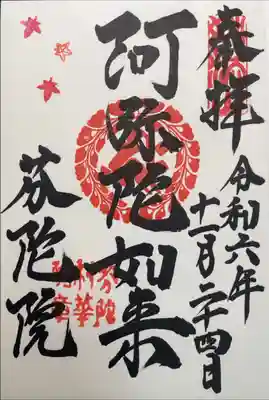 奉拝
令和六年
十一月二十四日
阿弥陀如来
芬陀院